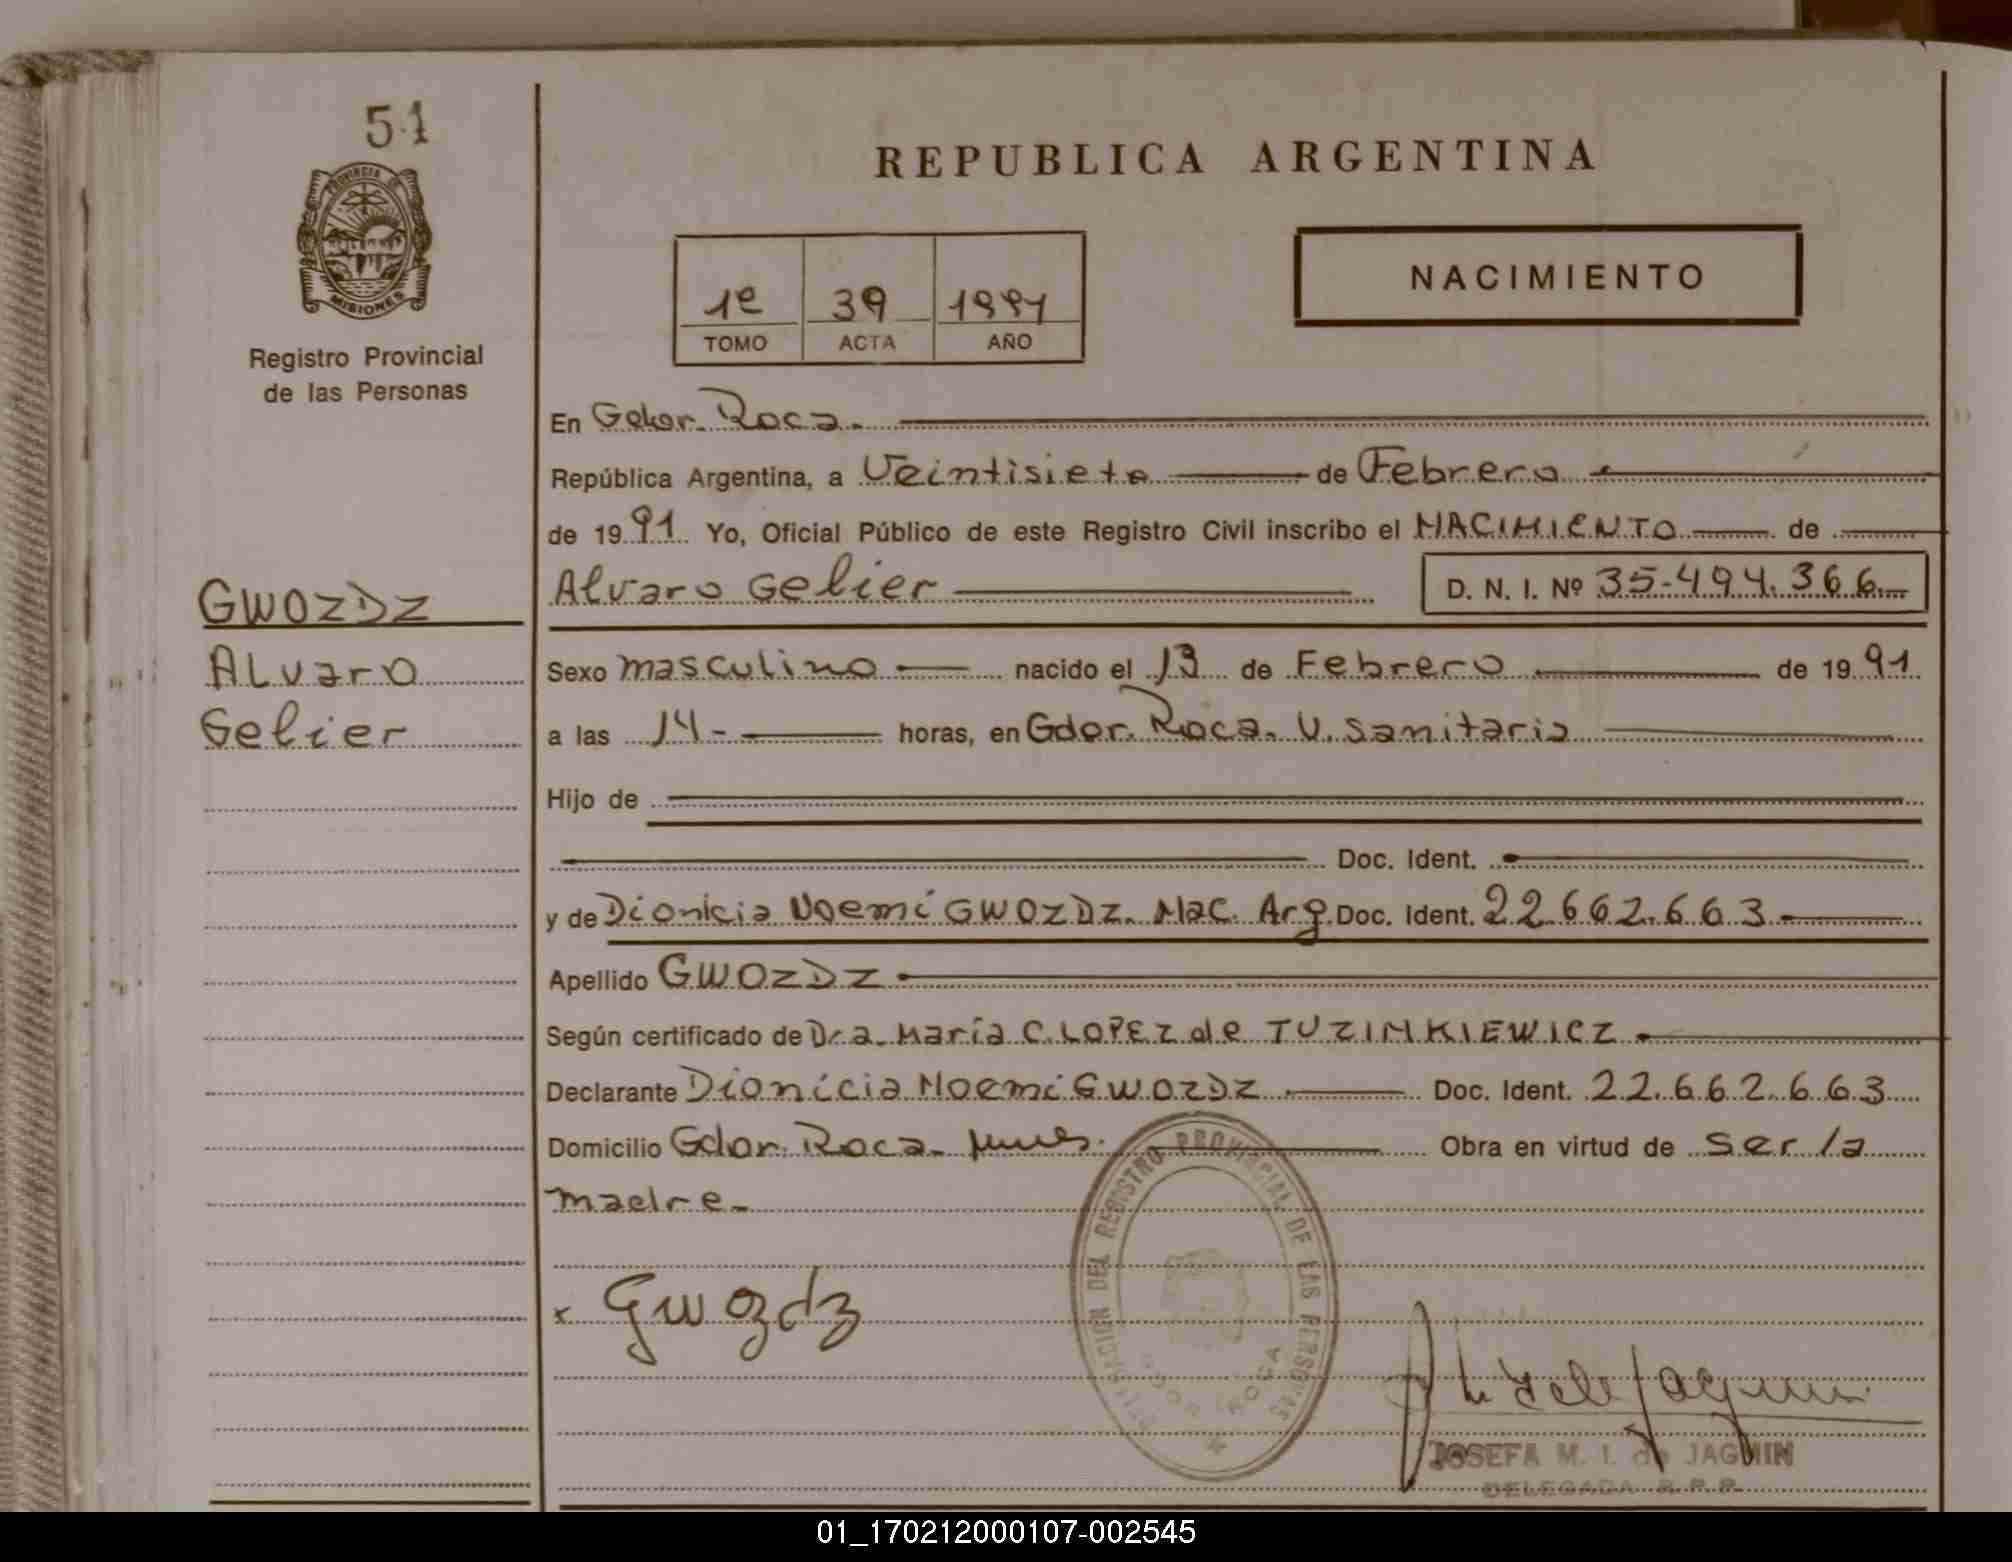 51
PROVINCIA DE
MISIONES
Registro Provincial
de las Personas
REPUBLICA ARGENTINA
1º 39 1991
TOMO ACTA AÑO
NACIMIENTO
En Gdor. Roca.
República Argentina, a Veintisiete de Febrero
de 1991 Yo, Oficial Público de este Registro Civil inscribo el NACIMIENTO de
GWOZDZ
Alvaro Gelier D. N. I. Nº 35-494.366
Alvaro
Gelier
Sexo masculino nacido el 13 de Febrero de 1991
a las 14- horas, en Gdor. Roca. U. Sanitaria
Hijo de
Doc. Ident.
y de Dionicia Noemí GWOZDZ. Nac. Arg. Doc. Ident. 22.662.663
Apellido GWOZDZ
Según certificado de Dra. María C. LOPEZ de TUZINKIEWICZ
Declarante Dionicia Noemí GWOZDZ Doc. Ident. 22.662.663
Domicilio Gdor. Roca. Mnes. Obra en virtud de ser la
madre.
x Gwozdz
DELEGACION DEL REGISTRO PROVINCIAL DE LAS PERSONAS
GDOR. ROCA
JOSEFA M. I. de JAGMIN
DELEGADA R.P.P.
01_170212000107-002545